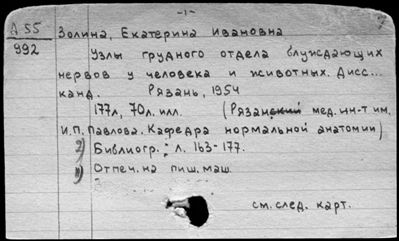 -1-
7
А 55
992
Золина, Екатерина Ивановна
Узлы грудного отдела блуждающих
нервов у человека и животных. Дисс...
канд. Рязань, 1954
177л, 70л. илл. (Рязанский мед. ин-т им.
И.П. Павлова. Кафедра нормальной анатомии)
2) Библиогр.: л. 163-177.
1) Отпеч. на пиш. маш.
см. след. карт.